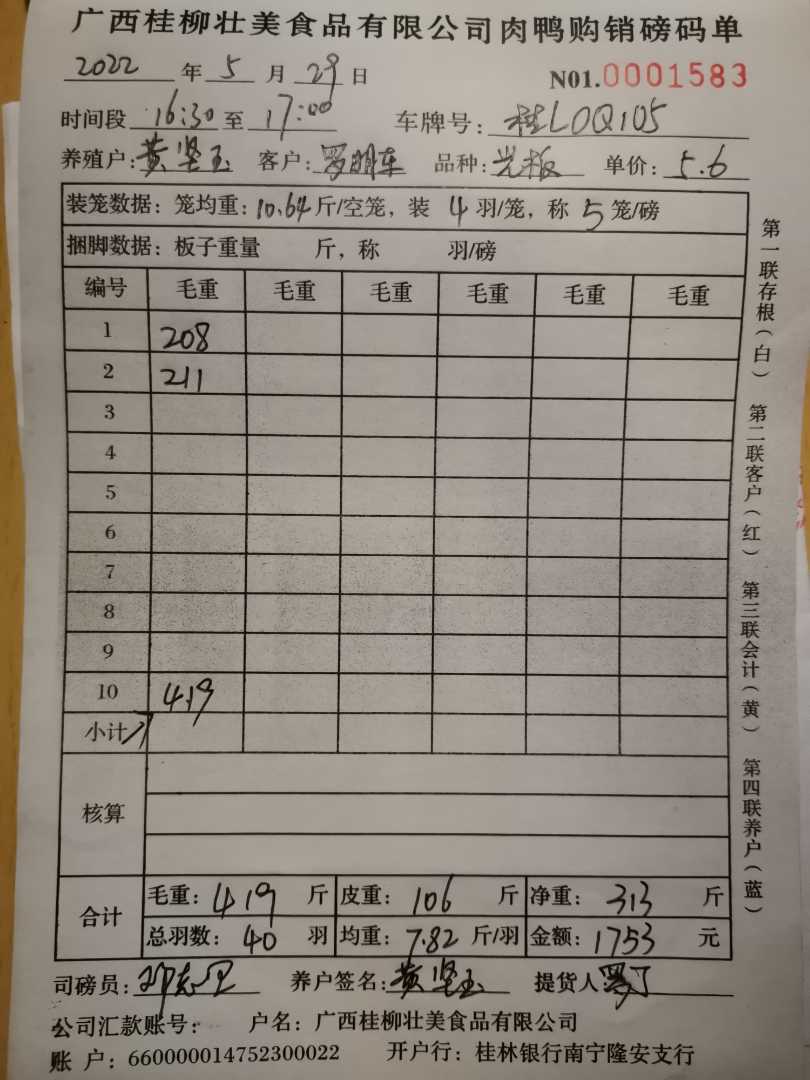 广西桂柳壮美食品有限公司肉鸭购销磅码单
2022 年 5 月 29 日 N01.0001583
时间段 16:30 至 17:00 车牌号: 桂LOQ105
养殖户: 黄坚玉 客户: 罗明东 品种: 光板 单价: 5.6
装笼数据: 笼均重: 10.64 斤/空笼, 装 4 羽/笼, 称 5 笼/磅
捆脚数据: 板子重量 斤, 称 羽/磅
编号 毛重 毛重 毛重 毛重 毛重 毛重
1 208
2 211
3
4
5
6
7
8
9
10 419
小计
核算
合计 毛重: 419 斤 皮重: 106 斤 净重: 313 斤
总羽数: 40 羽 均重: 7.82 斤/羽 金额: 1753 元
司磅员: 养户签名: 黄坚玉 提货人:
公司汇款账号: 户名: 广西桂柳壮美食品有限公司
账 户: 660000014752300022 开户行: 桂林银行南宁隆安支行
第一联存根(白) 第二联客户(红) 第三联会计(黄) 第四联养户(蓝)